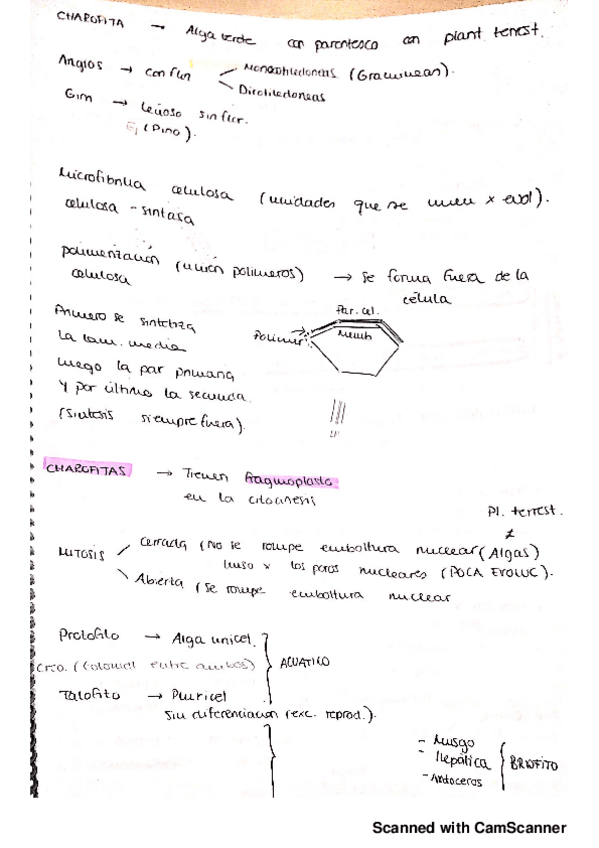 CHAROFITA → Alga verde con parentesco con plant terrest.
Angios → con flor
Monocotiledoneas (Gramineas).
Dicotiledoneas
Gim → leñoso sin flor.
Ej (Pino).
Microfibrilla celulosa (unidades que se unen x evol).
celulosa - sintasa
polimerización (unión polimeros) → se forma fuera de la
celulosa
célula
Primero se sintetiza
la lam. media
luego la par primaria
y por último la secunda.
(Sintesis siempre fuera).
Par. cel.
Polimer.
Memb
CHAROFITAS → Tienen fragmoplasto
en la citocinesis
Pl. terrest.
≠
MITOSIS
Cerrada (No se rompe emboltura nuclear (Algas)
huso x los poros nucleares (POCA EVOLUC).
Abierta (se rompe emboltura nuclear
Protofito → Alga unicel.
(Colonial entre ambos)
ACUATICO
Talofito → Pluricel
Sin diferenciacion (exc. reprod.).
- Musgo
- Hepática
- Antoceros
BRIOFITO
Scanned with CamScanner